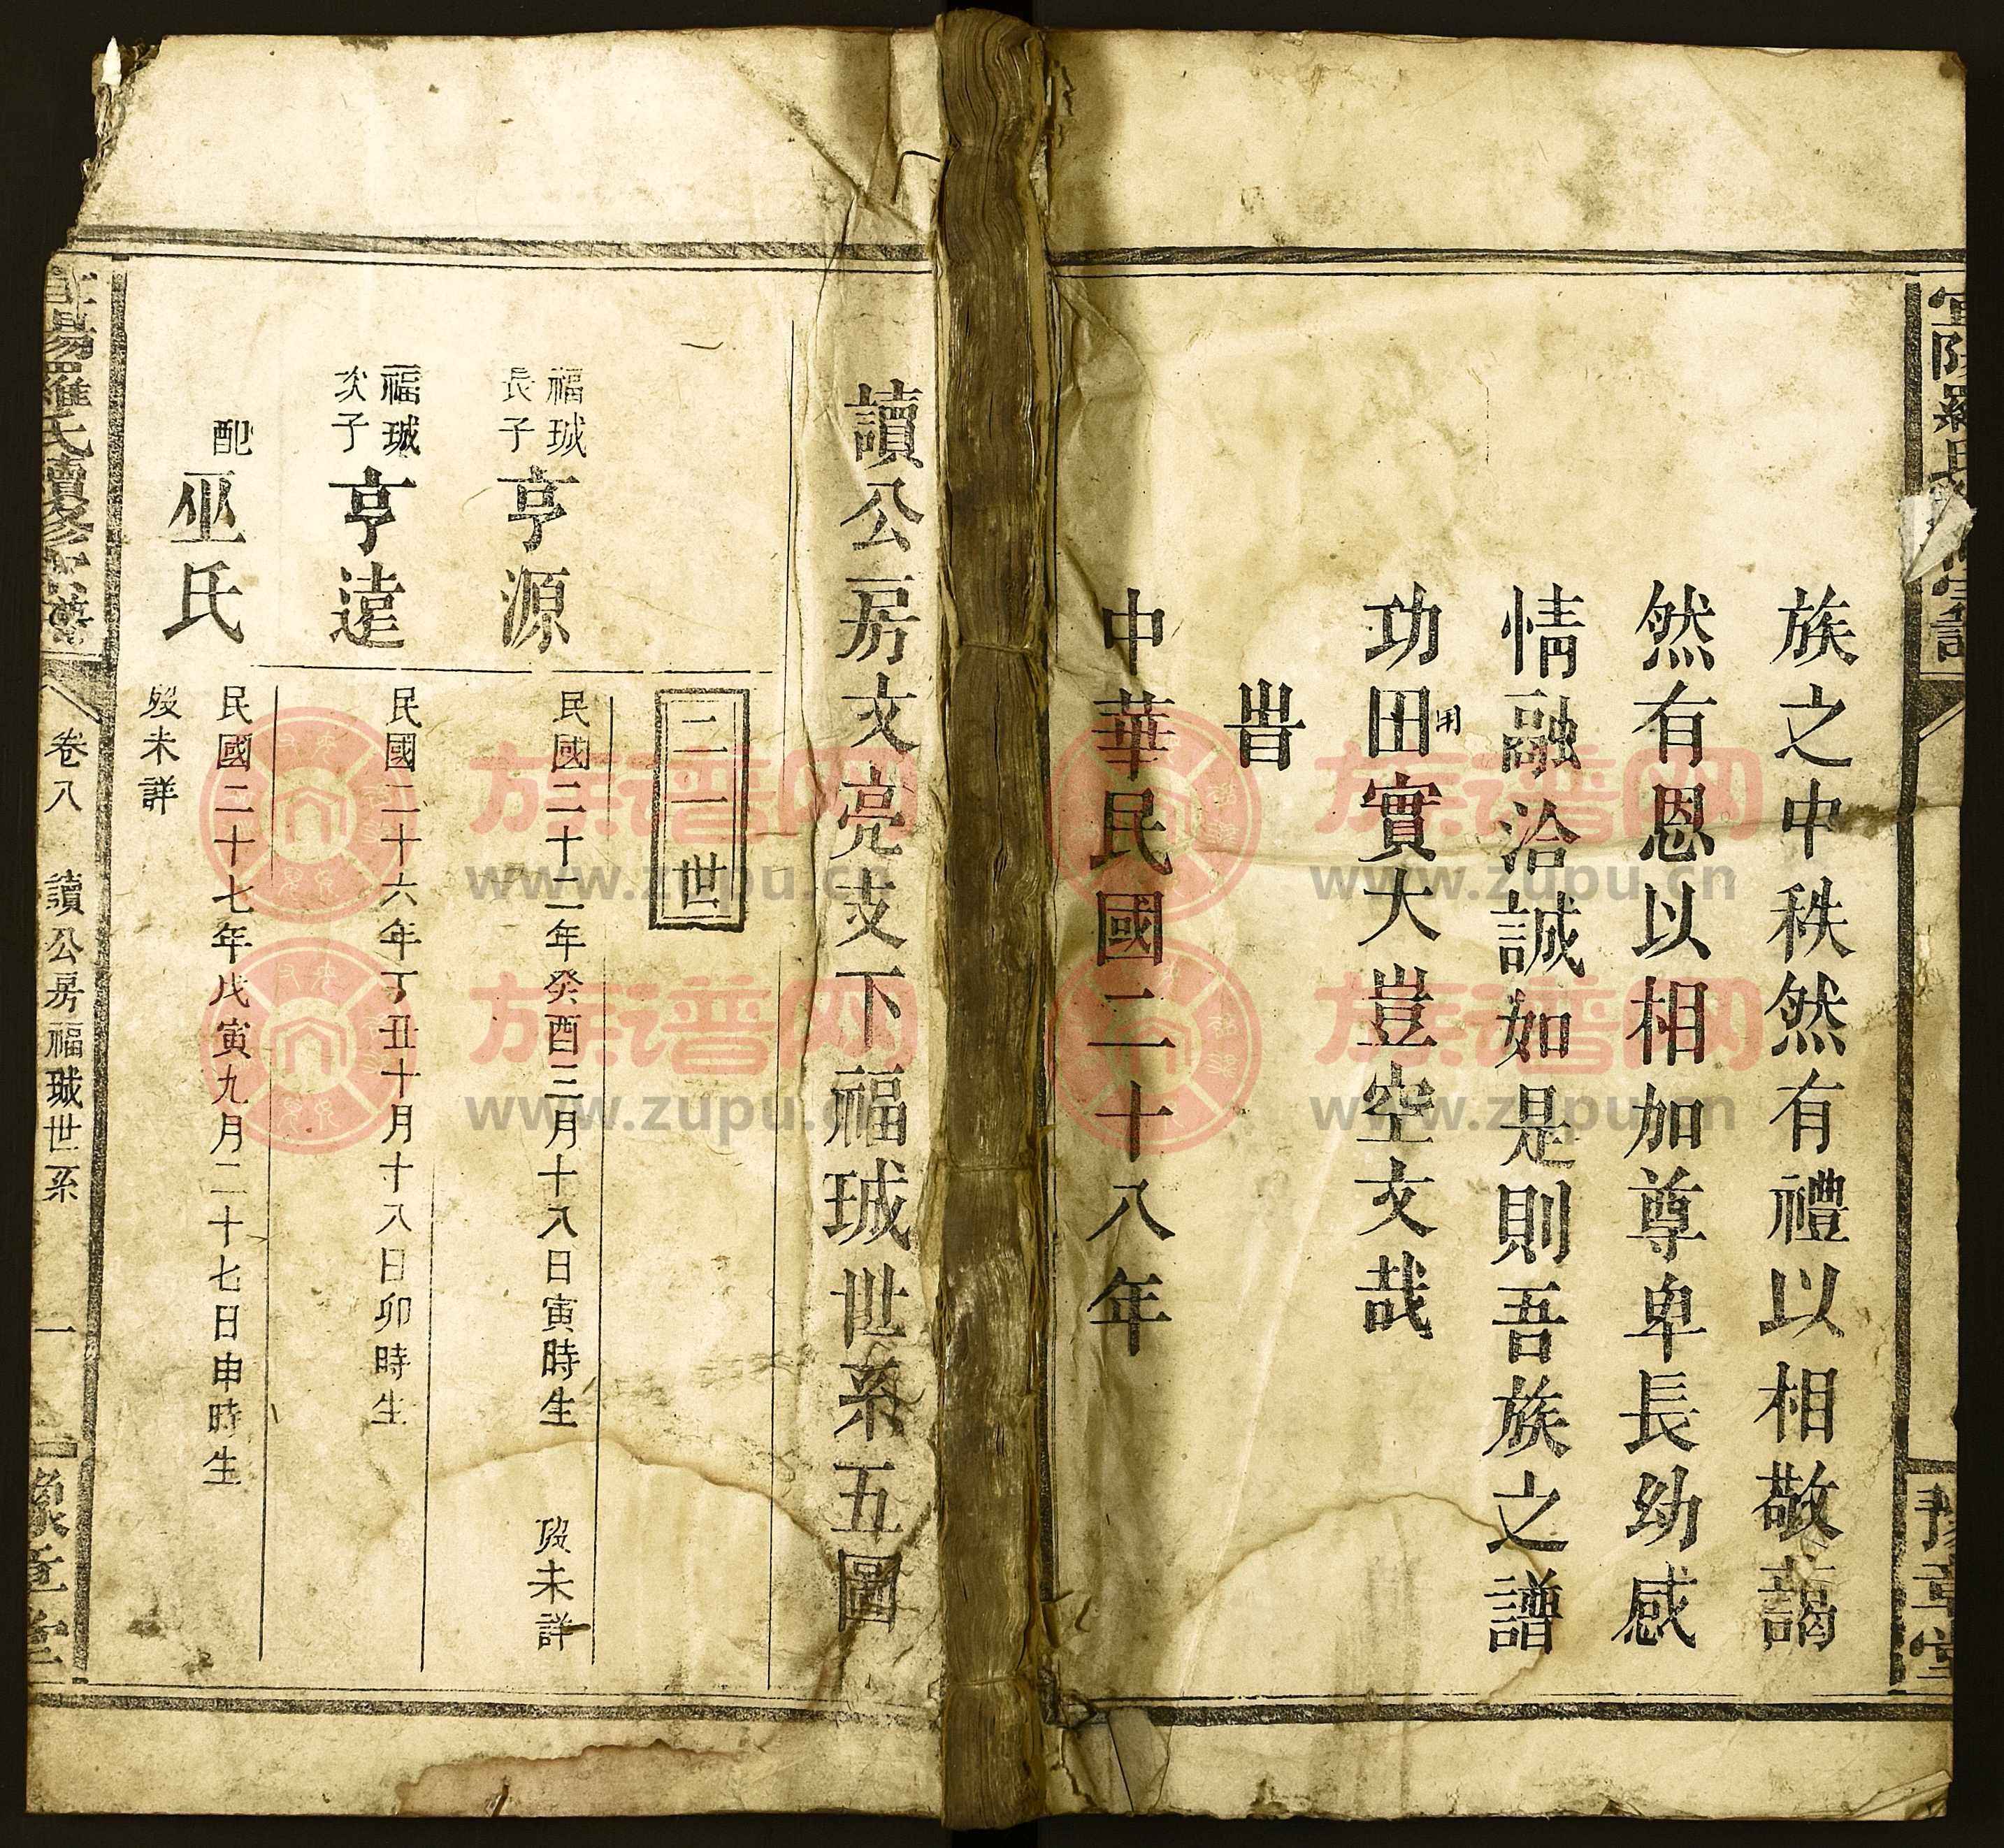 族之中秩然有禮以相敬藹
然有恩以相加尊卑長幼感
情融洽誠如是則吾族之譜
功田用實大豈空文哉
旹
中華民國二十八年
豫章堂
讀公房文亮支下福珹世系五圖
二一世
福珹長子亨源
民國二十二年癸酉三月十八日寅時生 歿未詳
福珹次子亨遠
民國二十六年丁丑十月十八日卯時生
配巫氏
民國二十七年戊寅九月二十七日申時生
歿未詳
羅氏續修
卷八 讀公房福珹世系 一
豫章堂
族谱网
www.zupu.cn
族谱网
www.zupu.cn
族谱网
www.zupu.cn
族谱网
www.zupu.cn